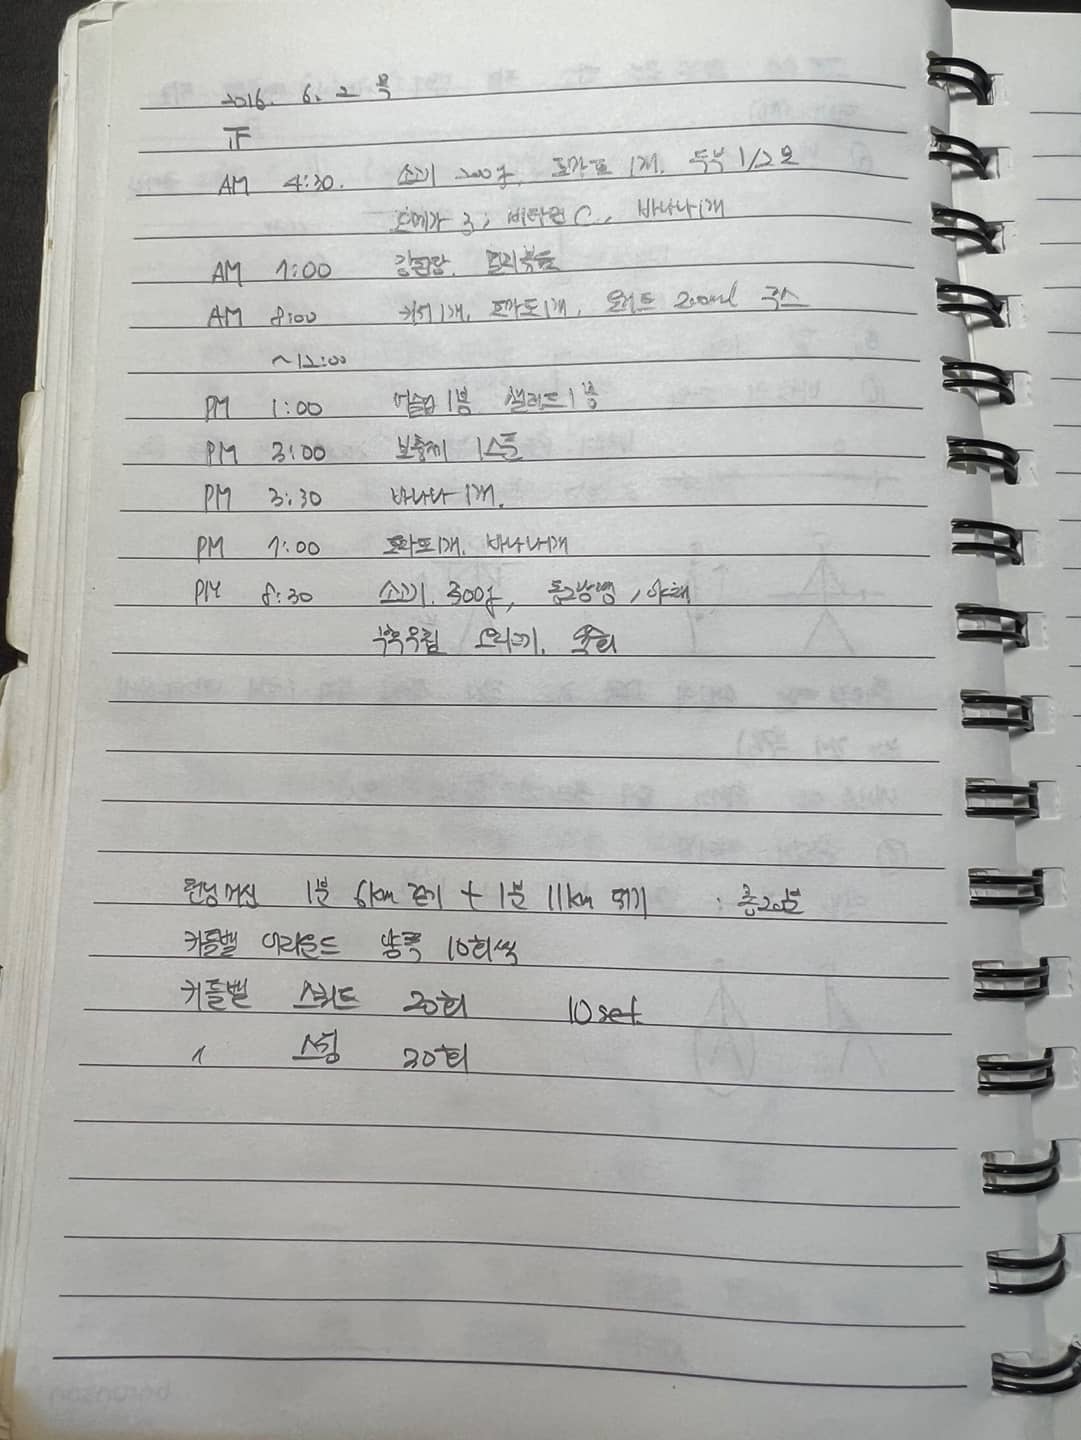 2016. 6. 2 목
正
AM 4:30. 소고기 200g, 토마토 1개. 두부 1/2모
오메가 3, 비타민 C, 바나나 1개
AM 7:00 강된장.
AM 8:00 커피 1개, 토마토 1개, 오렌지 200ml 쥬스
~12:00
PM 1:00 머슬업 1봉 샐러드 1봉
PM 3:00 보충제 1스푼
PM 3:30 바나나 1개.
PM 7:00 토마토 1개. 바나나 1개
PM 8:30 소고기. 300g, 동그랑땡, 야채
오리고기. 육회
런닝머신 1분 6km 걷기 + 1분 11km 뛰기 : 총 20분
커틀벨 어라운드 양쪽 10회씩
커틀벨 스쿼트 20회 10set
〃 스윙 20회